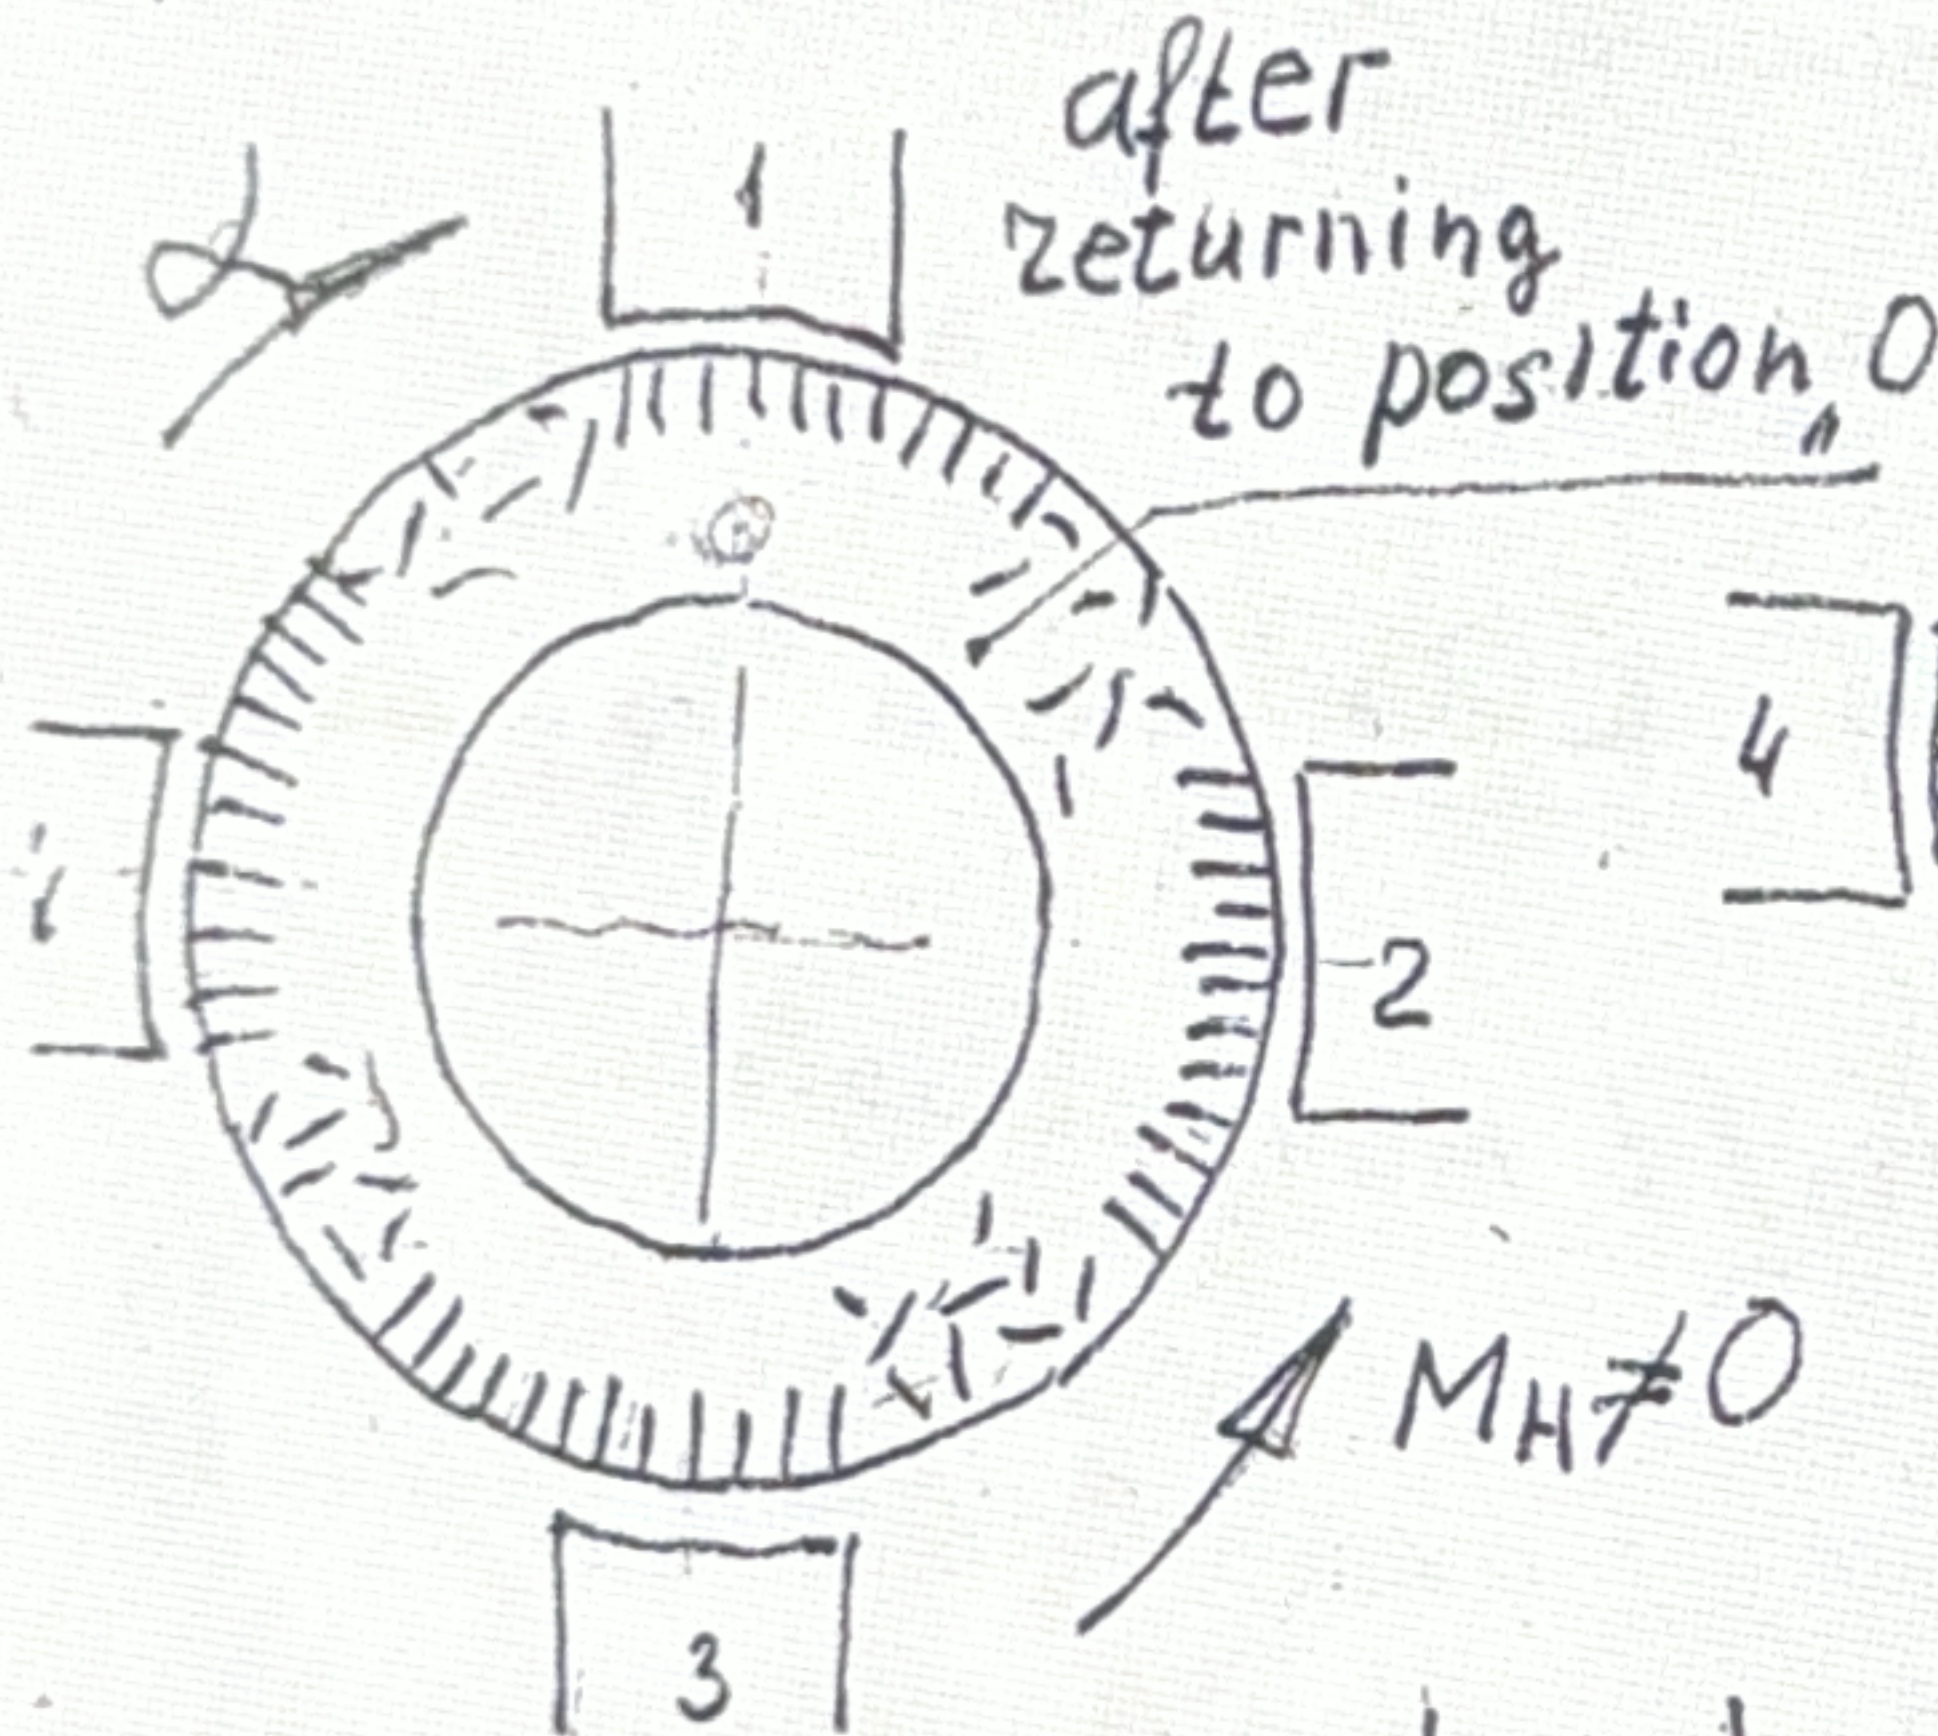 after
returning
to position „0
1
α
4
2
M_H≠0
3